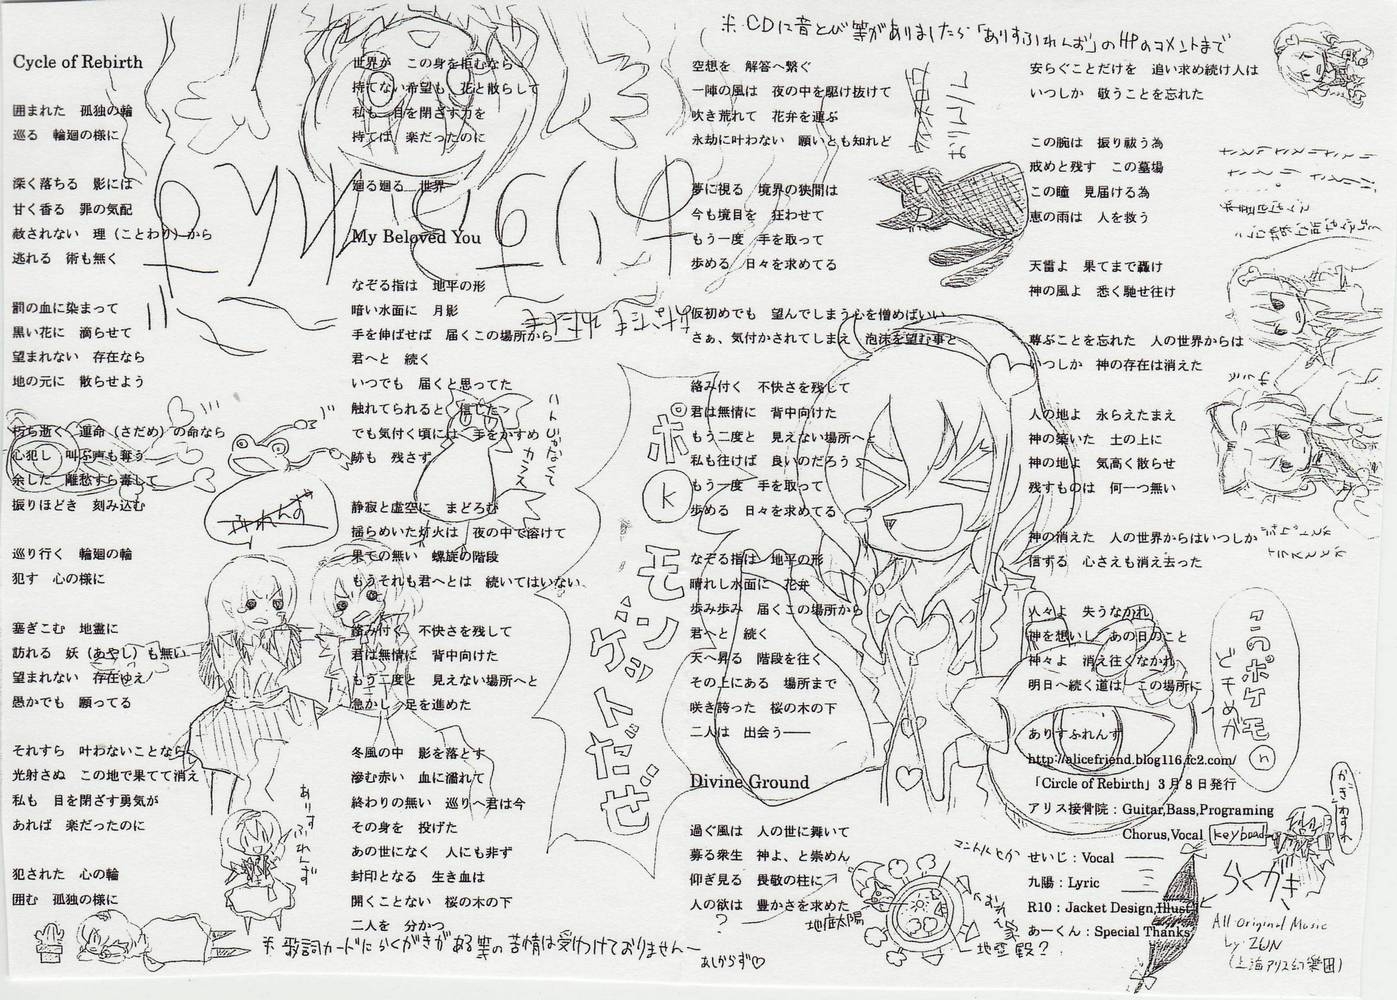 ※ CDに音とび等がありましたら「ありすふれんず」のHPのコメントまで
Cycle of Rebirth
囲まれた　孤独の輪
巡る　輪廻の様に
深く落ちる　影には
甘く香る　罪の気配
赦されない　理（ことわり）から
逃れる　術も無く
罰の血に染まって
黒い花に　滴らせて
望まれない　存在なら
地の元に　散らせよう
朽ち逝く　運命（さだめ）の命なら
心犯し　叫ぶ声も奪う
余した　離愁すら毒して
振りほどき　刻み込む
巡り行く　輪廻の輪
犯す　心の様に
塞ぎこむ　地霊に
訪れる　妖（あやし）も無い
望まれない　存在ゆえ
愚かでも　願ってる
それすら　叶わないことなら
光射さぬ　この地で果てて消え
私も　目を閉ざす勇気が
あれば　楽だったのに
犯された　心の輪
囲む　孤独の様に
世界が　この身を拒むなら
持てない希望も　花と散らして
私も　目を閉ざす力を
持てば　楽だったのに
廻る廻る　世界
My Beloved You
なぞる指は　地平の形
暗い水面に　月影
手を伸ばせば　届くこの場所から
君へと　続く
いつでも　届くと思ってた
触れてられると　信じた
でも気付く頃には　手をかすめ
跡も　残さず
静寂と虚空に　まどろむ
揺らめいた灯火は　夜の中で溶けて
果ての無い　螺旋の階段
もうそれも君へとは　続いてはいない、
絡み付く　不快さを残して
君は無情に　背中向けた
もう二度と　見えない場所へと
急かし　足を進めた
冬風の中　影を落とす
滲む赤い　血に濡れて
終わりの無い　巡りへ君は今
その身を　投げた
あの世になく　人にも非ず
封印となる　生き血は
開くことない　桜の木の下
二人を　分かつ
空想を　解答へ繋ぐ
一陣の風は　夜の中を駆け抜けて
吹き荒れて　花弁を運ぶ
永劫に叶わない　願いとも知れど
夢に視る　境界の狭間は
今も境目を　狂わせて
もう一度　手を取って
歩める　日々を求めてる
仮初めでも　望んでしまう心を憎めばいい
さぁ、気付かされてしまえ　泡沫を望む事と
絡み付く　不快さを残して
君は無情に　背中向けた
もう二度と　見えない場所へと
私も往けば　良いのだろう
もう一度　手を取って
歩める　日々を求めてる
なぞる指は　地平の形
晴れし水面に　花弁
歩み歩み　届くこの場所から
君へと　続く
天へ昇る　階段を往く
その上にある　場所まで
咲き誇った　桜の木の下
二人は　出会う――
Divine Ground
過ぐ風は　人の世に舞いて
募る衆生　神よ、と崇めん
仰ぎ見る　畏敬の柱に
人の欲は　豊かさを求めた
安らぐことだけを　追い求め続け人は
いつしか　敬うことを忘れた
この腕は　振り祓う為
戒めと残す　この墓場
この瞳　見届ける為
恵の雨は　人を救う
天雷よ　果てまで轟け
神の風よ　悉く馳せ往け
尊ぶことを忘れた　人の世界からは
いつしか　神の存在は消えた
人の地よ　永らえたまえ
神の築いた　土の上に
神の地よ　気高く散らせ
残すものは　何一つ無い
神の消えた　人の世界からはいつしか
信ずる　心さえも消え去った
人々よ　失うなかれ
神を想いし　あの日のこと
神々よ　消え往くなかれ
明日へ続く道は　この場所に
ありすふれんず
http://alicefriend.blog116.fc2.com/
「Circle of Rebirth」3月8日発行
アリス接骨院：Guitar,Bass,Programing
Chorus,Vocal keyboad
せいじ：Vocal
九陽：Lyric
R10：Jacket Design,Illust
あーくん：Special Thanks
らくがき
All Original Music
by ZUN
（上海アリス幻樂団）
かぎわすれ
このポケモn
どチめが
ポkモンゲットだぜ
ふれんず
ありす
ふれんず
地底太陽
地霊殿？
※ 歌詞カードにらくがきがある等の苦情は受けつけておりませんー
あしからず♡